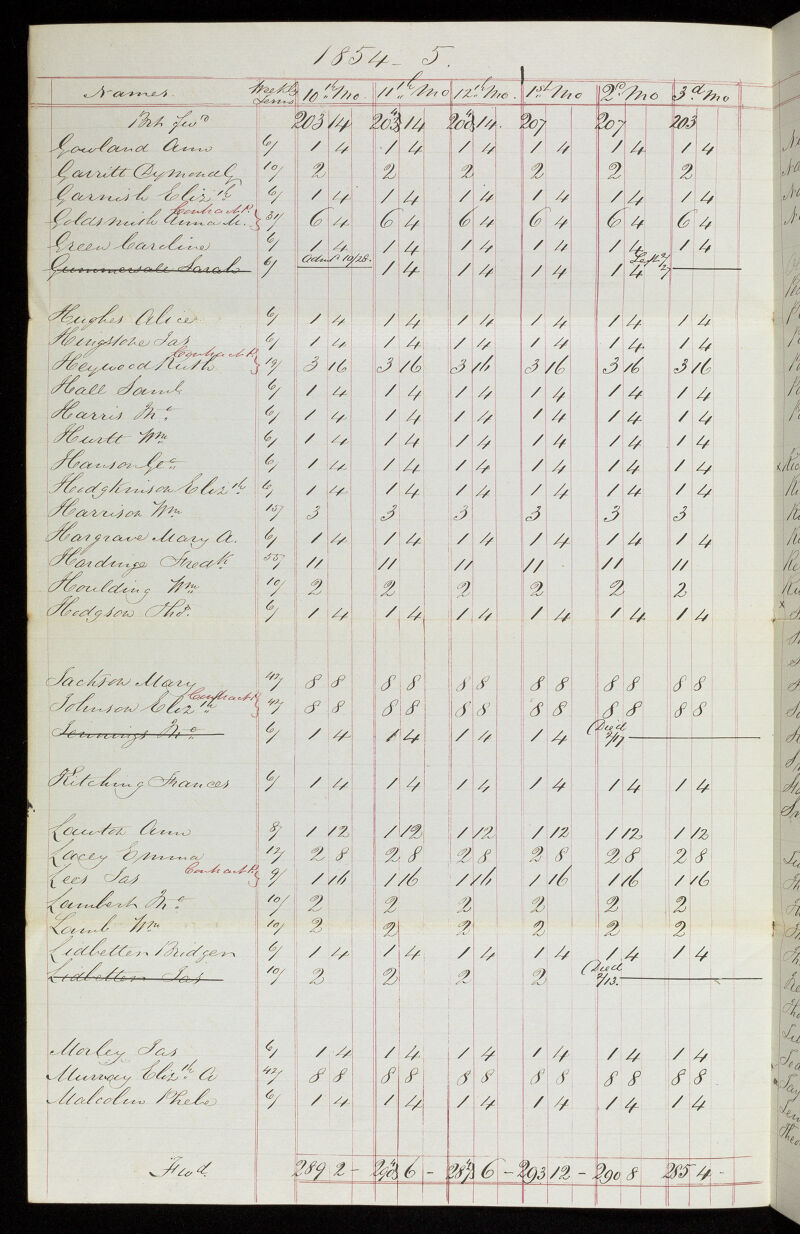 1854-5.
Names. Weekly Terms 10th Mo 11th Mo 12th Mo. 1st Mo 2d Mo 3d Mo
Brt Fwd 203 14 14 14. 207 207 203
Gowland Ann 6/ 1 4 1 4 1 4 1 4 1 4 1 4
Garritt Dymond G 10/ 2 2 2 2 2 2
Garnish Elizth 6/ 1 4 1 4 1 4 1 4 1 4 1 4
Contract Pt.
Goldsmith Anna M. 6 4 6 4 6 4 6 4 6 4 6 4
Green Caroline 6/ 1 4 1 4 1 4 1 4 1 4 1 4
Gummersale Sarah 6/ Admd 10/28. 1 4 1 4 1 4 1 4 Left 2/27
Hughes Alice 6/ 1 4 1 4 1 4 1 4 1 4 1 4
Hingstone Jas 6/ 1 4 1 4 1 4 1 4 1 4 1 4
Contract Pt
Heywood Ruth 19/ 3 16 3 16 3 16 3 16 3 16 3 16
Hall Saml 6/ 1 4 1 4 1 4 1 4 1 4 1 4
Harris Ma. 6/ 1 4 1 4 1 4 1 4 1 4 1 4
Hurtt Wm 6/ 1 4 1 4 1 4 1 4 1 4 1 4
Hanson Geo 6/ 1 4 1 4 1 4 1 4 1 4 1 4
Hodgkinson Elizth 6/ 1 4 1 4 1 4 1 4 1 4 1 4
Harrison Wm 15/ 3 3 3 3 3 3
Hargrave Mary A. 6/ 1 4 1 4 1 4 1 4 1 4 1 4
Hardinge Fredk 55/ 11 11 11 11 11 11
Houlding Wm 10/ 2 2 2 2 2 2
Hodgson Thos. 6/ 1 4 1 4 1 4 1 4 1 4 1 4
Jackson Mary 42/ 8 8 8 8 8 8 8 8 8 8 8 8
Contract Pt
Johnson Elizth 42/ 8 8 8 8 8 8 8 8 8 8 8 8
Jennings Ma 6/ 1 4 1 4 1 4 1 4 Died 2/17
Kitching Frances 6/ 1 4 1 4 1 4 1 4 1 4 1 4
Lawton Ann 8/ 1 12 1 12 1 12 1 12 1 12 1 12
Lacey Emma 12/ 2 8 2 8 2 8 2 8 2 8 2 8
Contract Pt
Lees Jas 9/ 1 16 1 16 1 16 1 16 1 16 1 16
Lambert Ma 10/ 2 2 2 2 2 2
Lamb Wm 10/ 2 2 2 2 2 2
Lidbetter Bridger 6/ 1 4 1 4 1 4 1 4 1 4 1 4
Lidbetter Jas 10/ 2 2 2 2 Died 2/13.
Morley Jas 6/ 1 4 1 4 1 4 1 4 1 4 1 4
Murray Elizth A 42/ 8 8 8 8 8 8 8 8 8 8 8 8
Malcolm Phebe 6/ 1 4 1 4 1 4 1 4 1 4 1 4
Fwd. 289 2 - 6 - 6 - 293 12 - 290 8 285 4 -